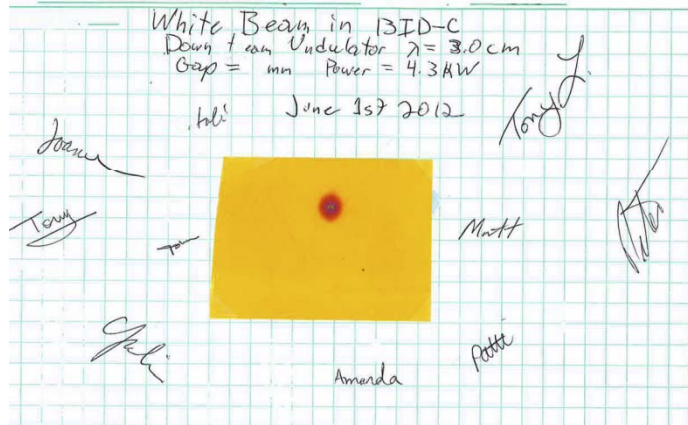 White Beam in 13ID-C
Down t eam Undulator λ = 3.0 cm
Gap = mm Power = 4.3 KW
June 1st 2012
Tony L.
Joanne
Tony
Tom
Matt
Peter
Patti
Amanda